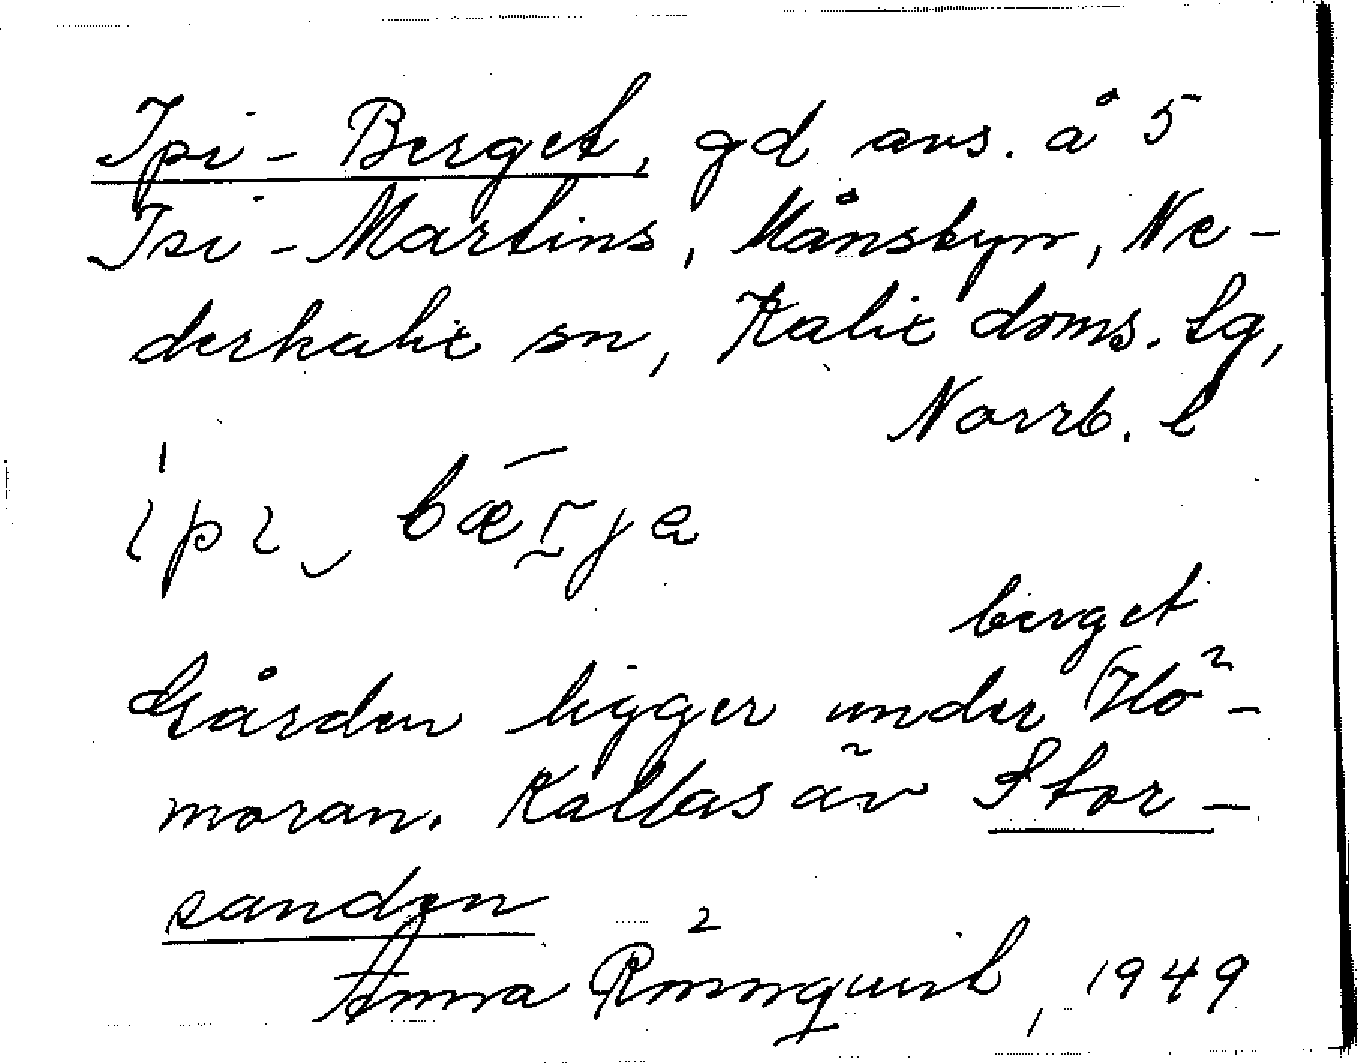 Ipi-Berget, gd avs. å 5
Isi-Martins, Månsbyn, Ne-
derkalix sn, Kalix doms. tg,
Norrb. l
ipi bærja
berget
Gården ligger under Hö-
moran. Kallas äv Stor-
sanden
Anna Rönnquist, 1949